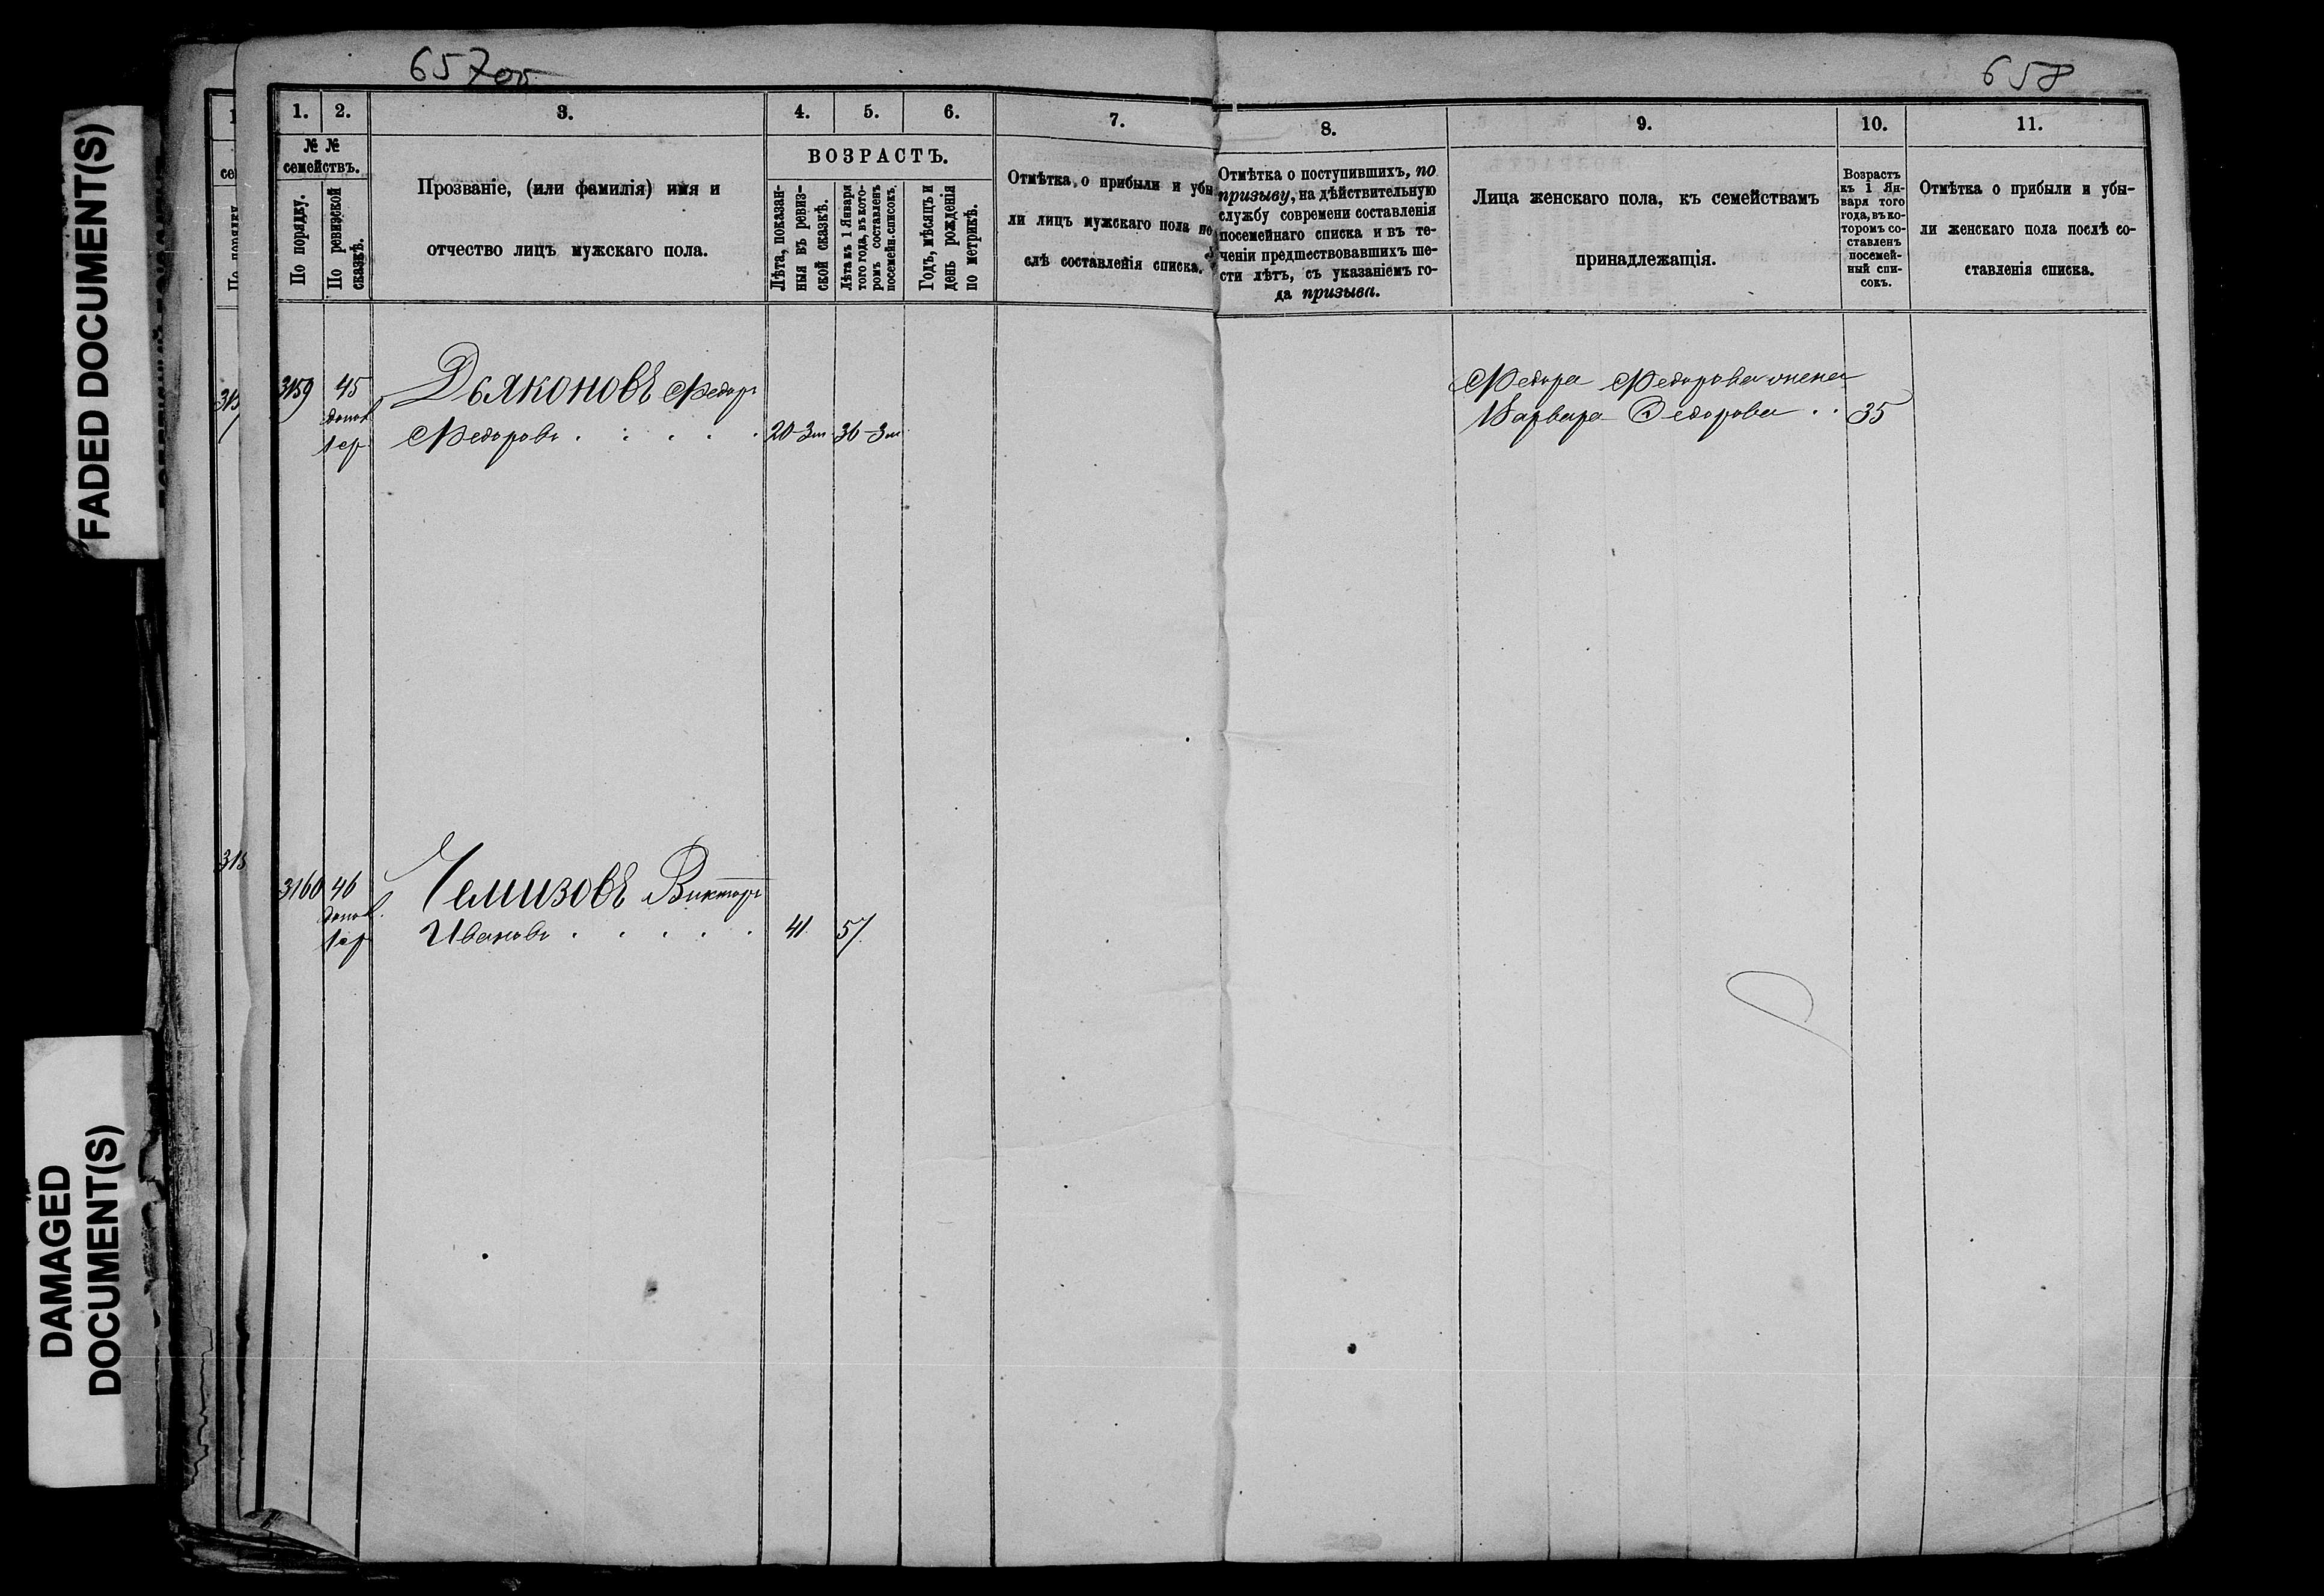 FADED DOCUMENT(S)
DAMAGED
DOCUMENT(S)
657об
658
1.
2.
3.
4.
5.
6.
7.
8.
9.
10.
11.
№ №
семействъ.
По порядку.
По ревизской
сказкѣ.
Прозваніе, (или фамилія) имя и
отчество лицъ мужскаго пола.
ВОЗРАСТЪ.
Лѣта, показан-
ныя въ ревиз-
ской сказкѣ.
Лѣта къ 1 Января
того года, въ кото-
ромъ составленъ
посемейн. списокъ.
Годъ, мѣсяцъ и
день рожденія
по метрикѣ.
Отмѣтка о прибыли и убы
ли лицъ мужскаго пола по
слѣ составленія списка.
Отмѣтка о поступившихъ, по
призыву, на дѣйствительную
службу современи составленія
посемейнаго списка и въ те-
ченіи предшествовавшихъ ше-
сти лѣтъ, съ указаніемъ го-
да призыва.
Лица женскаго пола, къ семействамъ
принадлежащія.
Возрастъ
къ 1 Ян-
варя того
года, въ ко-
торомъ со-
ставленъ
посемей-
ный спи-
сокъ.
Отмѣтка о прибыли и убы-
ли женскаго пола послѣ со-
ставленія списка.
3159 45 Дьяконовъ Федоръ
допол.
Федоровъ . . . . . 20-3м 36-3м
Федора Федорова жена
Варвара Федорова . . 35
3160 46 Виктор
допол.
Ивановъ . . . . . 41 57